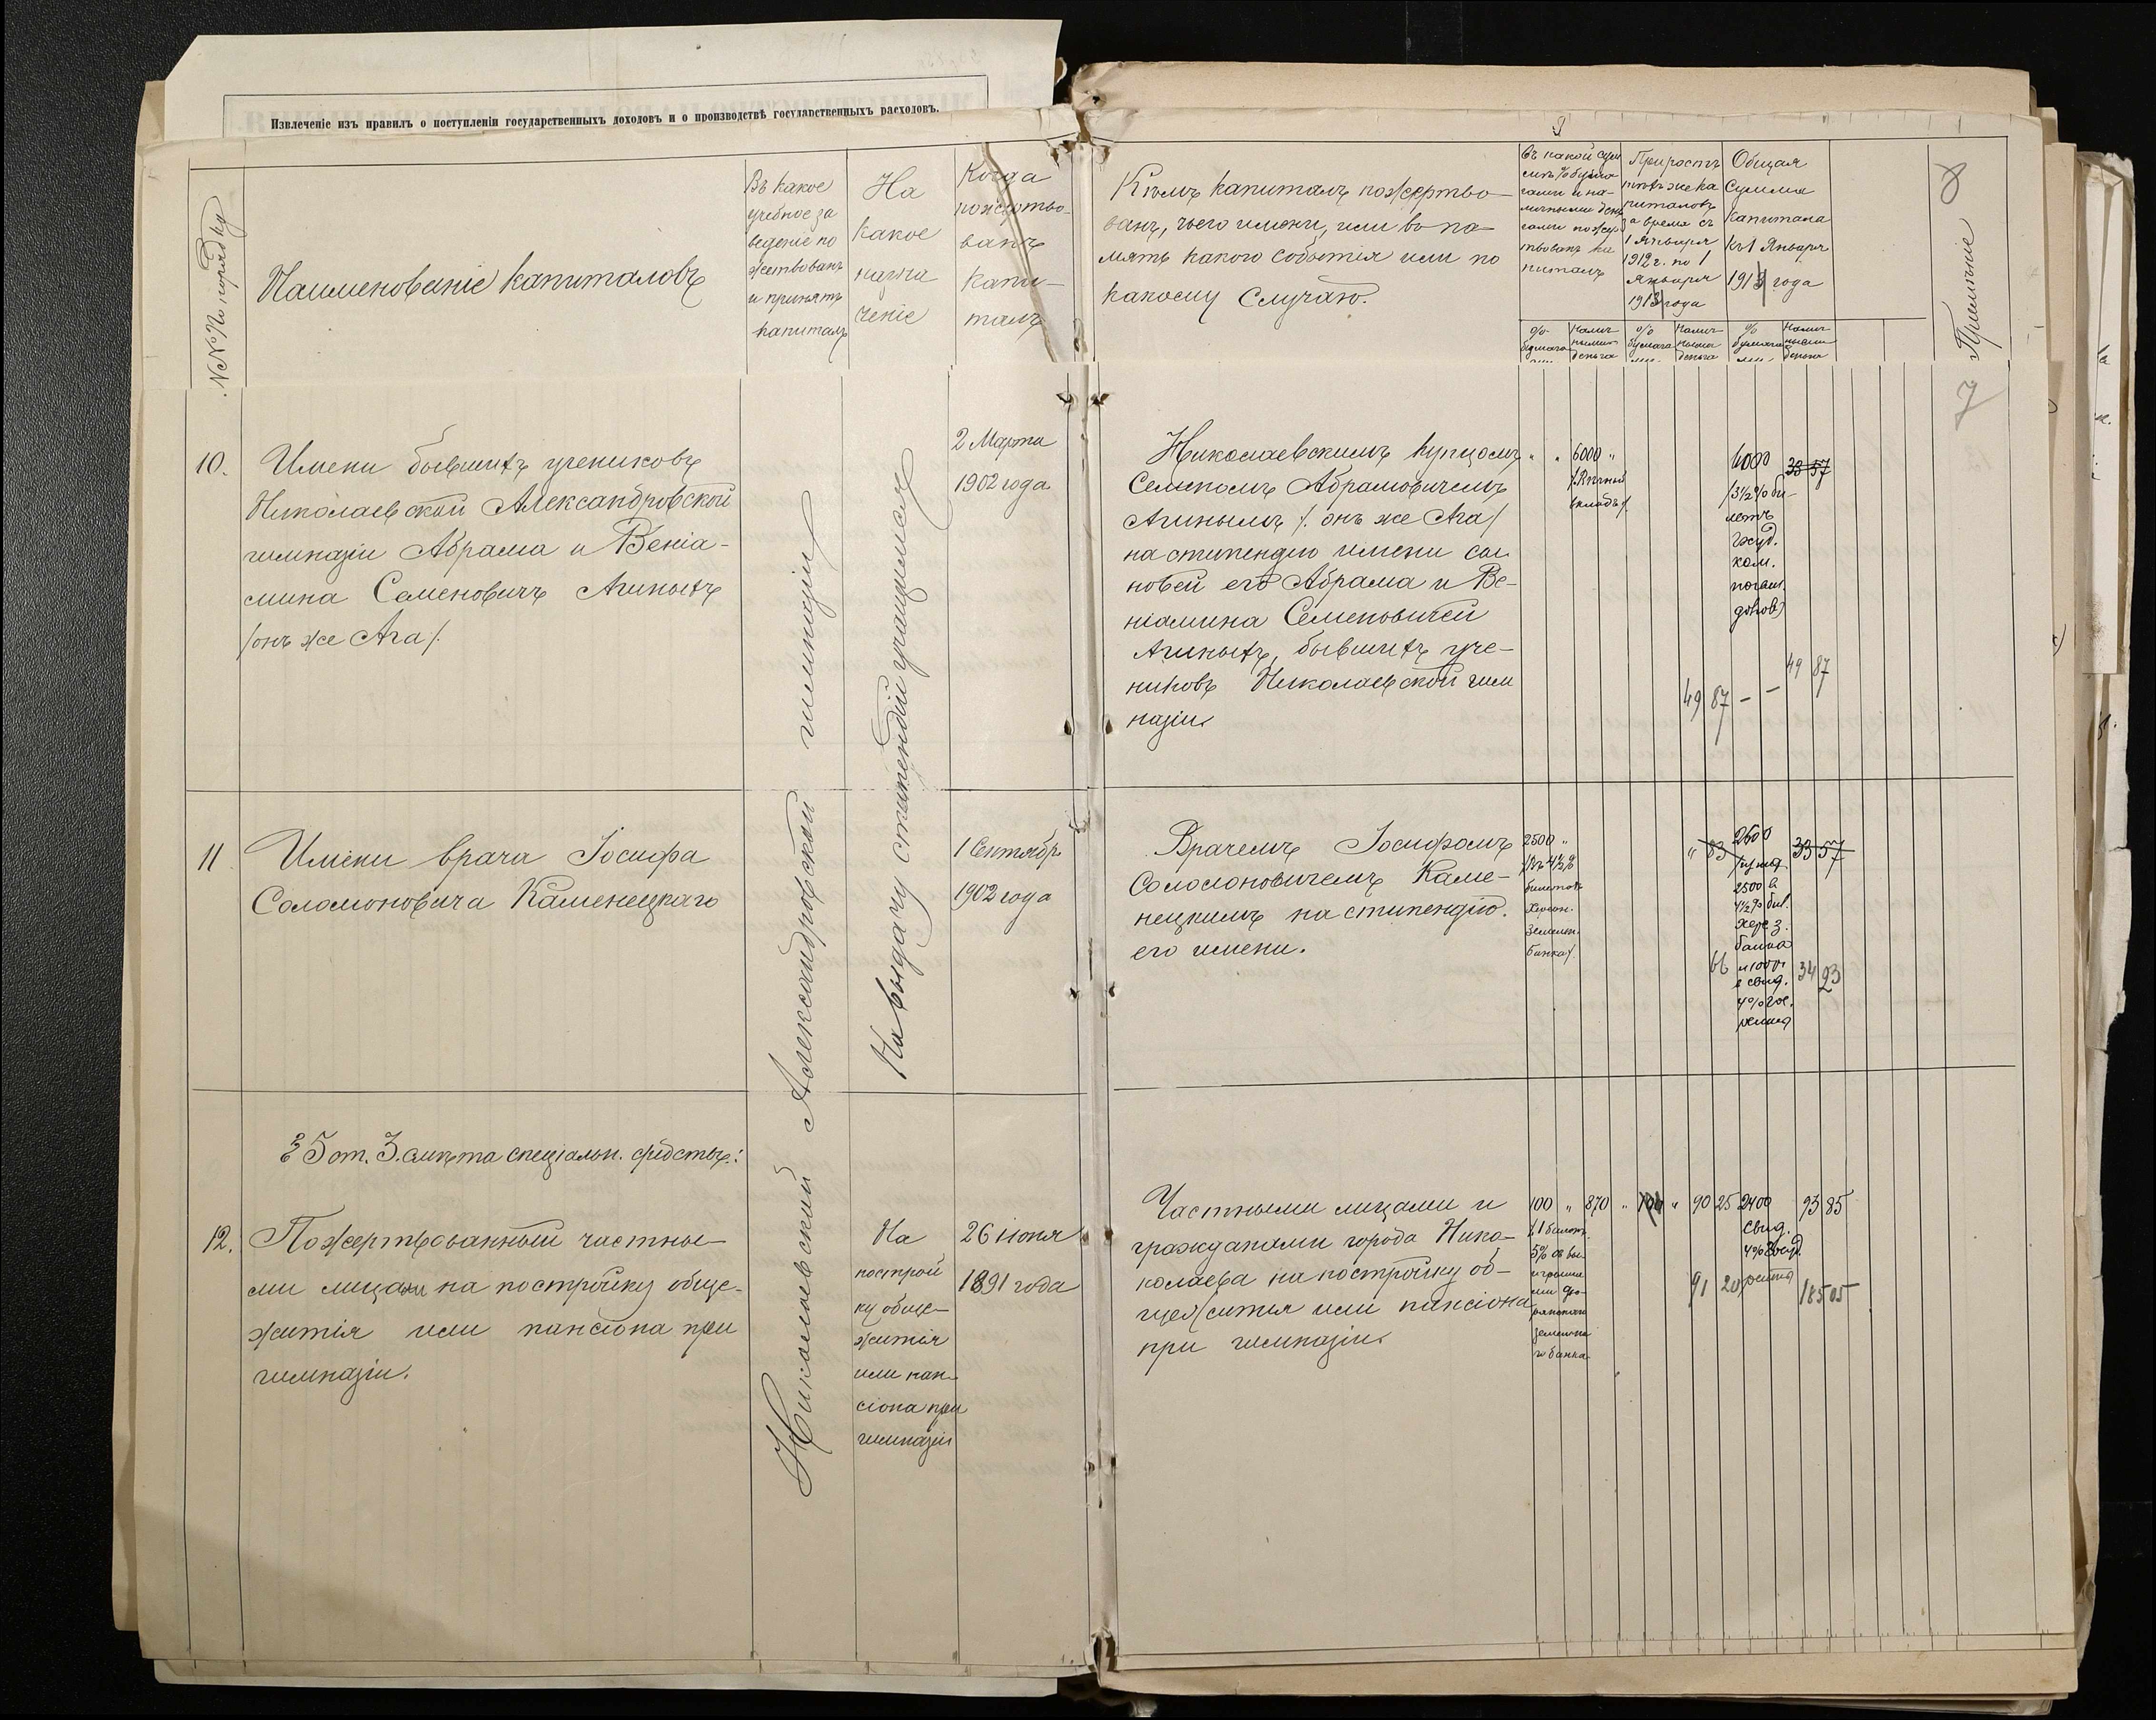 Извлеченіе изъ правилъ о поступленіи государственныхъ доходовъ и о производствѣ государственныхъ расходовъ.
№№ По порядку
Наименованіе капиталовъ
Въ какое
учебное за
веденіе по
жертвованъ
и принятъ
капиталъ
На
какое
назна
ченіе
Когда
пожертво-
ванъ
капи-
талъ
Кѣмъ капиталъ пожертво-
ванъ, чьего имени, или въ па-
мять какого событія или по
какому случаю.
Въ какой сум
мѣ % бума
гами и на-
личными день
гами пожер
твованъ ка
питалъ
Приростъ
тѣхъ же ка
питаловъ
за время съ
1 Января
1912 г. по 1
Января
1913 года
Общая
сумма
капитала
къ 1 Января
1913 года
Примѣчаніе
8
%
бумага
ми
Налич
ными
деньга
%
бумага
ми
Налич
ными
деньга
%
бумага
ми
Налич
ными
деньга
7
10.
Имени бывшихъ учениковъ
Николаевской Александровской
гимназіи Абрама и Веніа-
мина Семеновичъ Агиныхъ
/онъ же Ага/.
2 Марта
1902 года
Николаевскимъ купцомъ
Семеномъ Абрамовичемъ
Агинымъ /. онъ же Ага/
на стипендію имени сы
новей его Абрама и Ве-
ніамина Семеновичей
Агиныхъ, бывшихъ уче-
никовъ Николаевской гим
назіи.
" " 6000 "
вкладъ/.
4000
/3½% би-
летъ
госуд.
ком.
погаш.
долговъ/
33 57
49 87 - -
49 87
11
Имени врача Іосифа
Соломоновича Каменецкаго
1 Сентябр.
1902 года
Врачемъ Іосифомъ
Соломоновичемъ Каме-
нецкимъ на стипендію
его имени.
2500 "
/Въ 4½%
билетахъ
Херсон.
Земельн.
банка/.
" 83
2600
2500 в
4½% бил.
Херс з.
банка
и 100 р.
в свид.
4% гос.
рента
33 57
66
34 93
Николаевской Александровской гимназіи
На выдачу стипендій учащимся
§ 5 ст. 3. смѣта спеціальн. средствъ:
12.
Пожертвованный частны-
ми лицами на постройку обще-
житія или пансіона при
гимназіи.
На
построй
ку обще-
житія
или пан-
сіона при
гимназіи
26 іюня
1891 года
Частными лицами и
гражданами города Нико-
лаева на постройку об-
щежитія или пансіона
при гимназіи.
100 " 870 " 100 " 90 25 2400 93 85
/. 1 билетъ
5% съ вы-
игрыша
ми дво-
рянскаго
земельна
го банка
свид.
4% Госуд.
рента
91 20
185 05